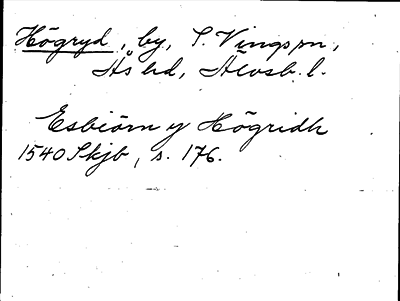 Högryd, by, S. Vings sn,
Ås hd, Älvsb. l.
Esbiörn y Högridh
1540 Skjb, s. 176.